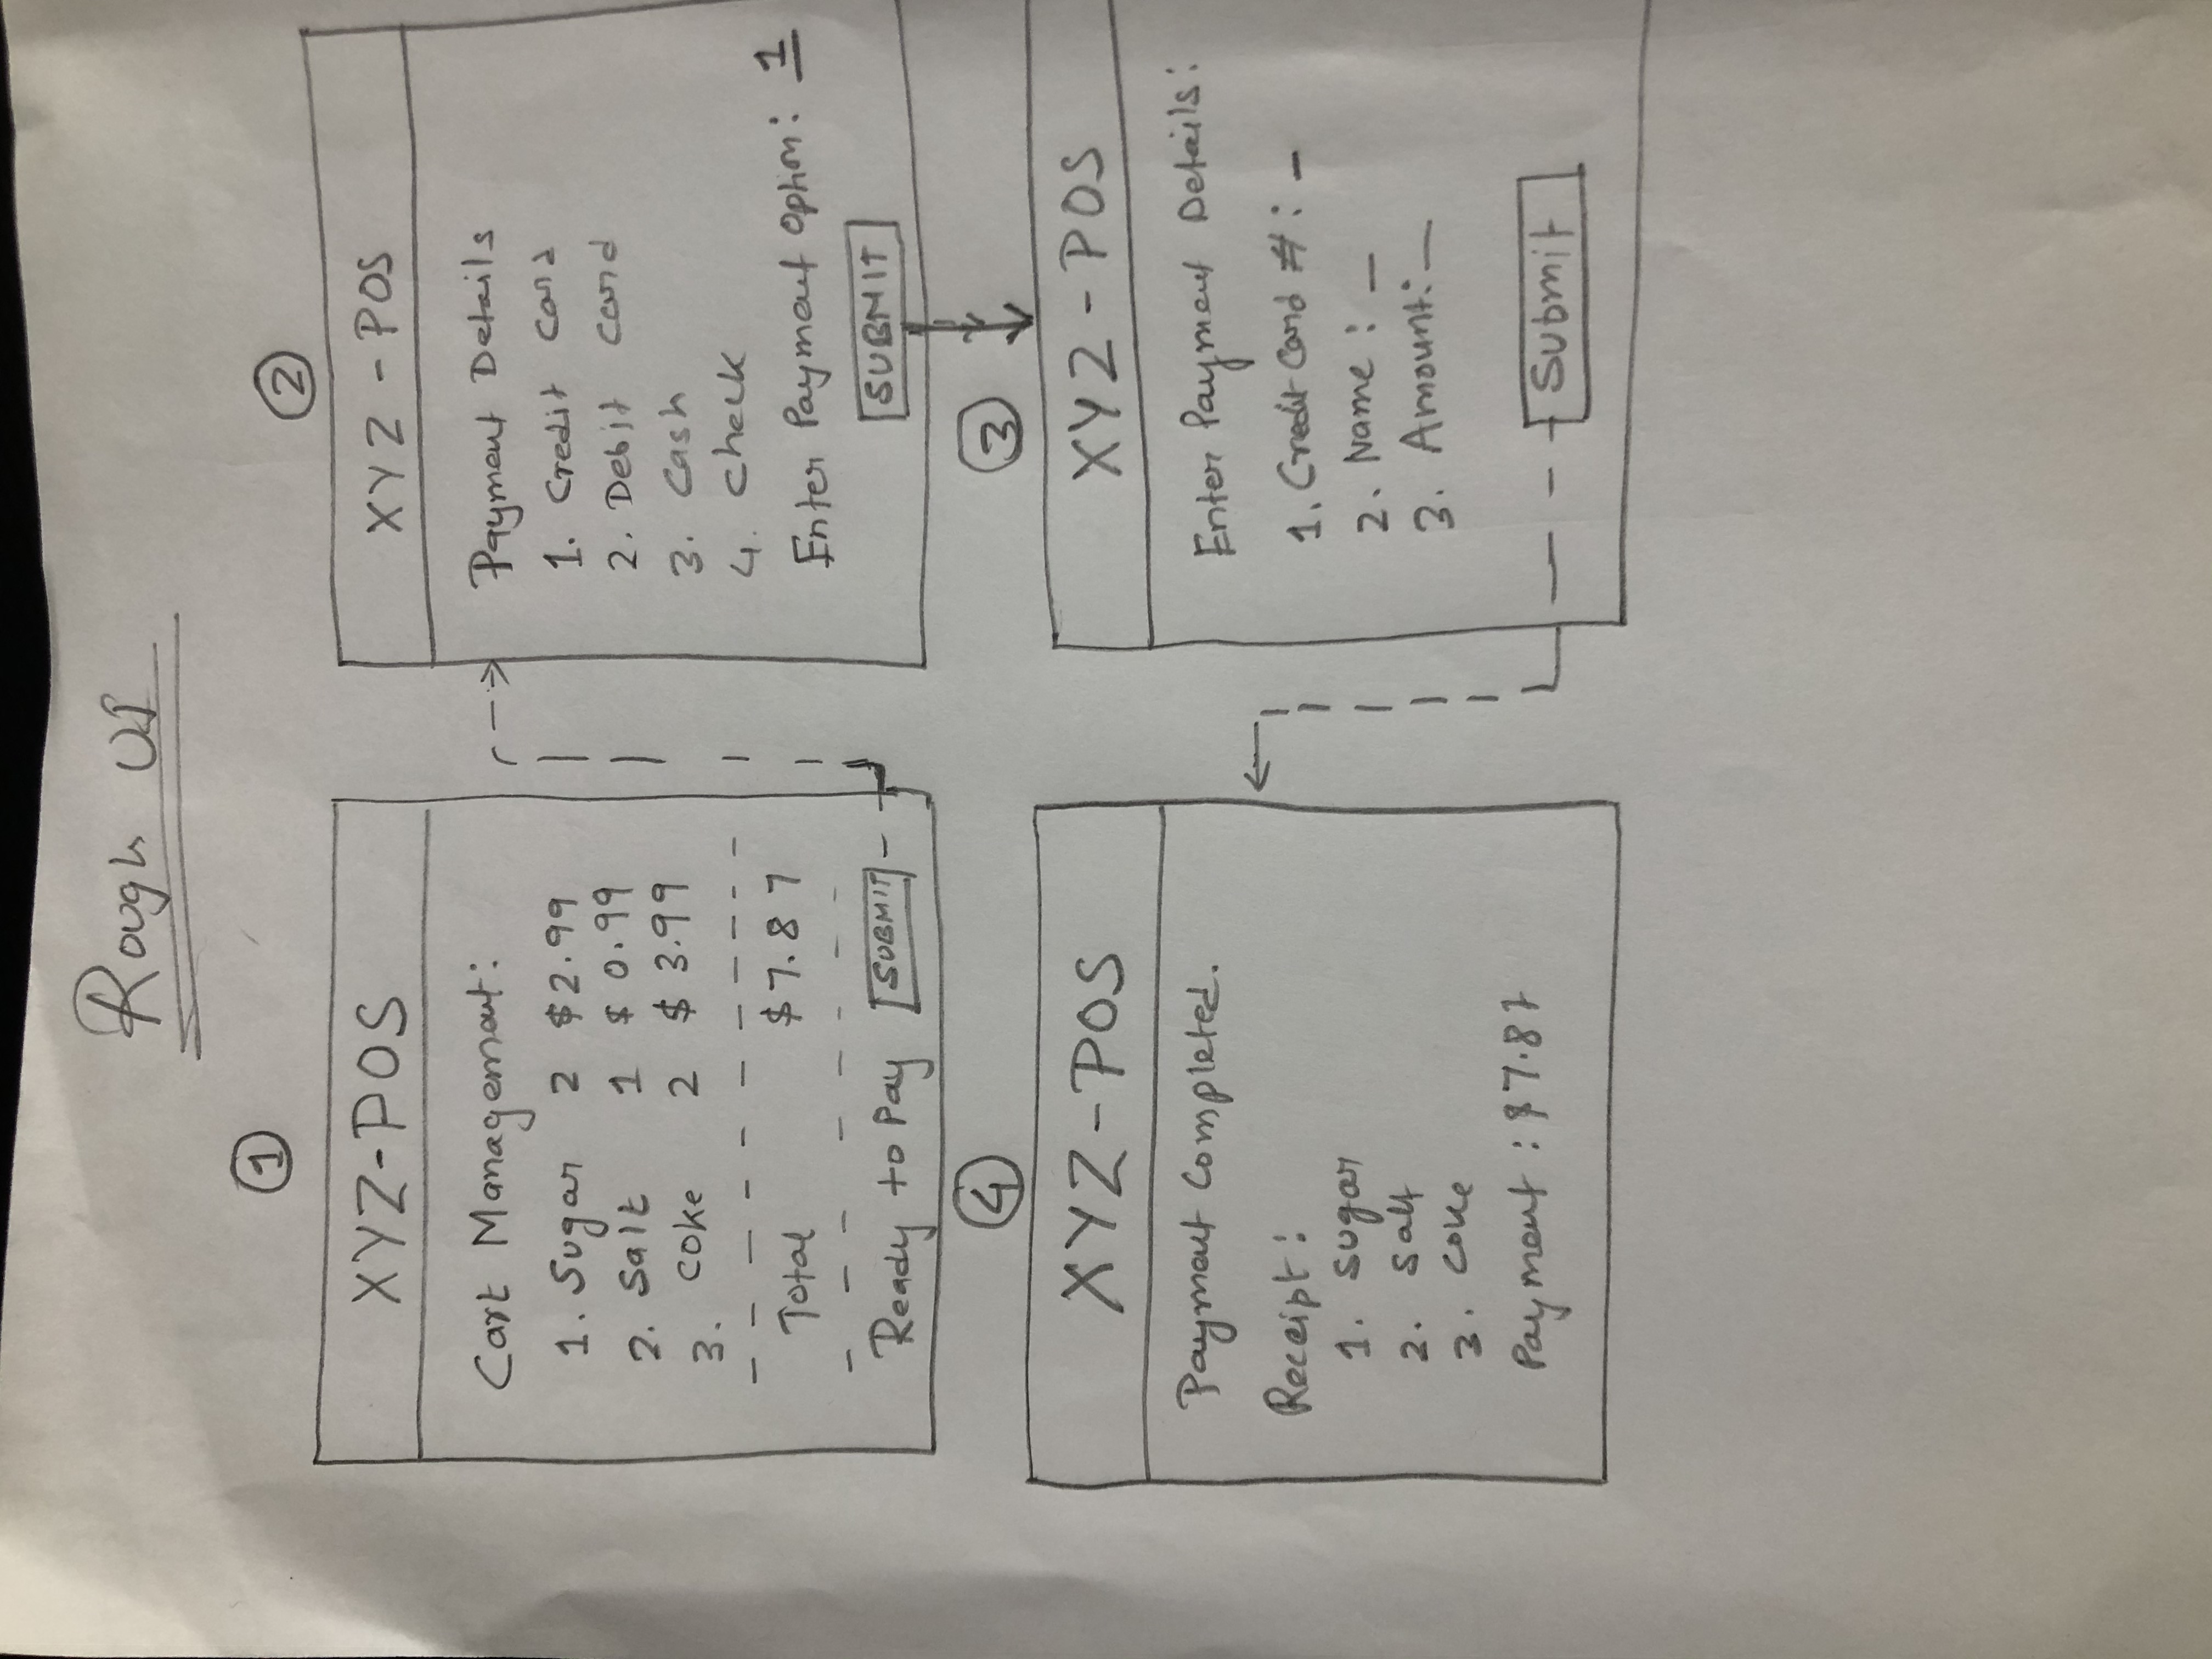 Rough UI
1
XYZ-POS
Cart Management:
1. Sugar 2 $2.99
2. Salt 1 $0.99
3. Coke 2 $3.99
Total $7.87
Ready to Pay SUBMIT
2
XYZ - POS
Payment Details
1. Credit Card
2. Debit Card
3. Cash
4. Check
Enter Payment Option: 1
SUBMIT
3
XYZ - POS
Enter Payment Details:
1. Credit Card #: _
2. Name : _
3. Amount: _
Submit
4
XYZ-POS
Payment Completed.
Receipt:
1. Sugar
2. Salt
3. Coke
Payment : $7.87